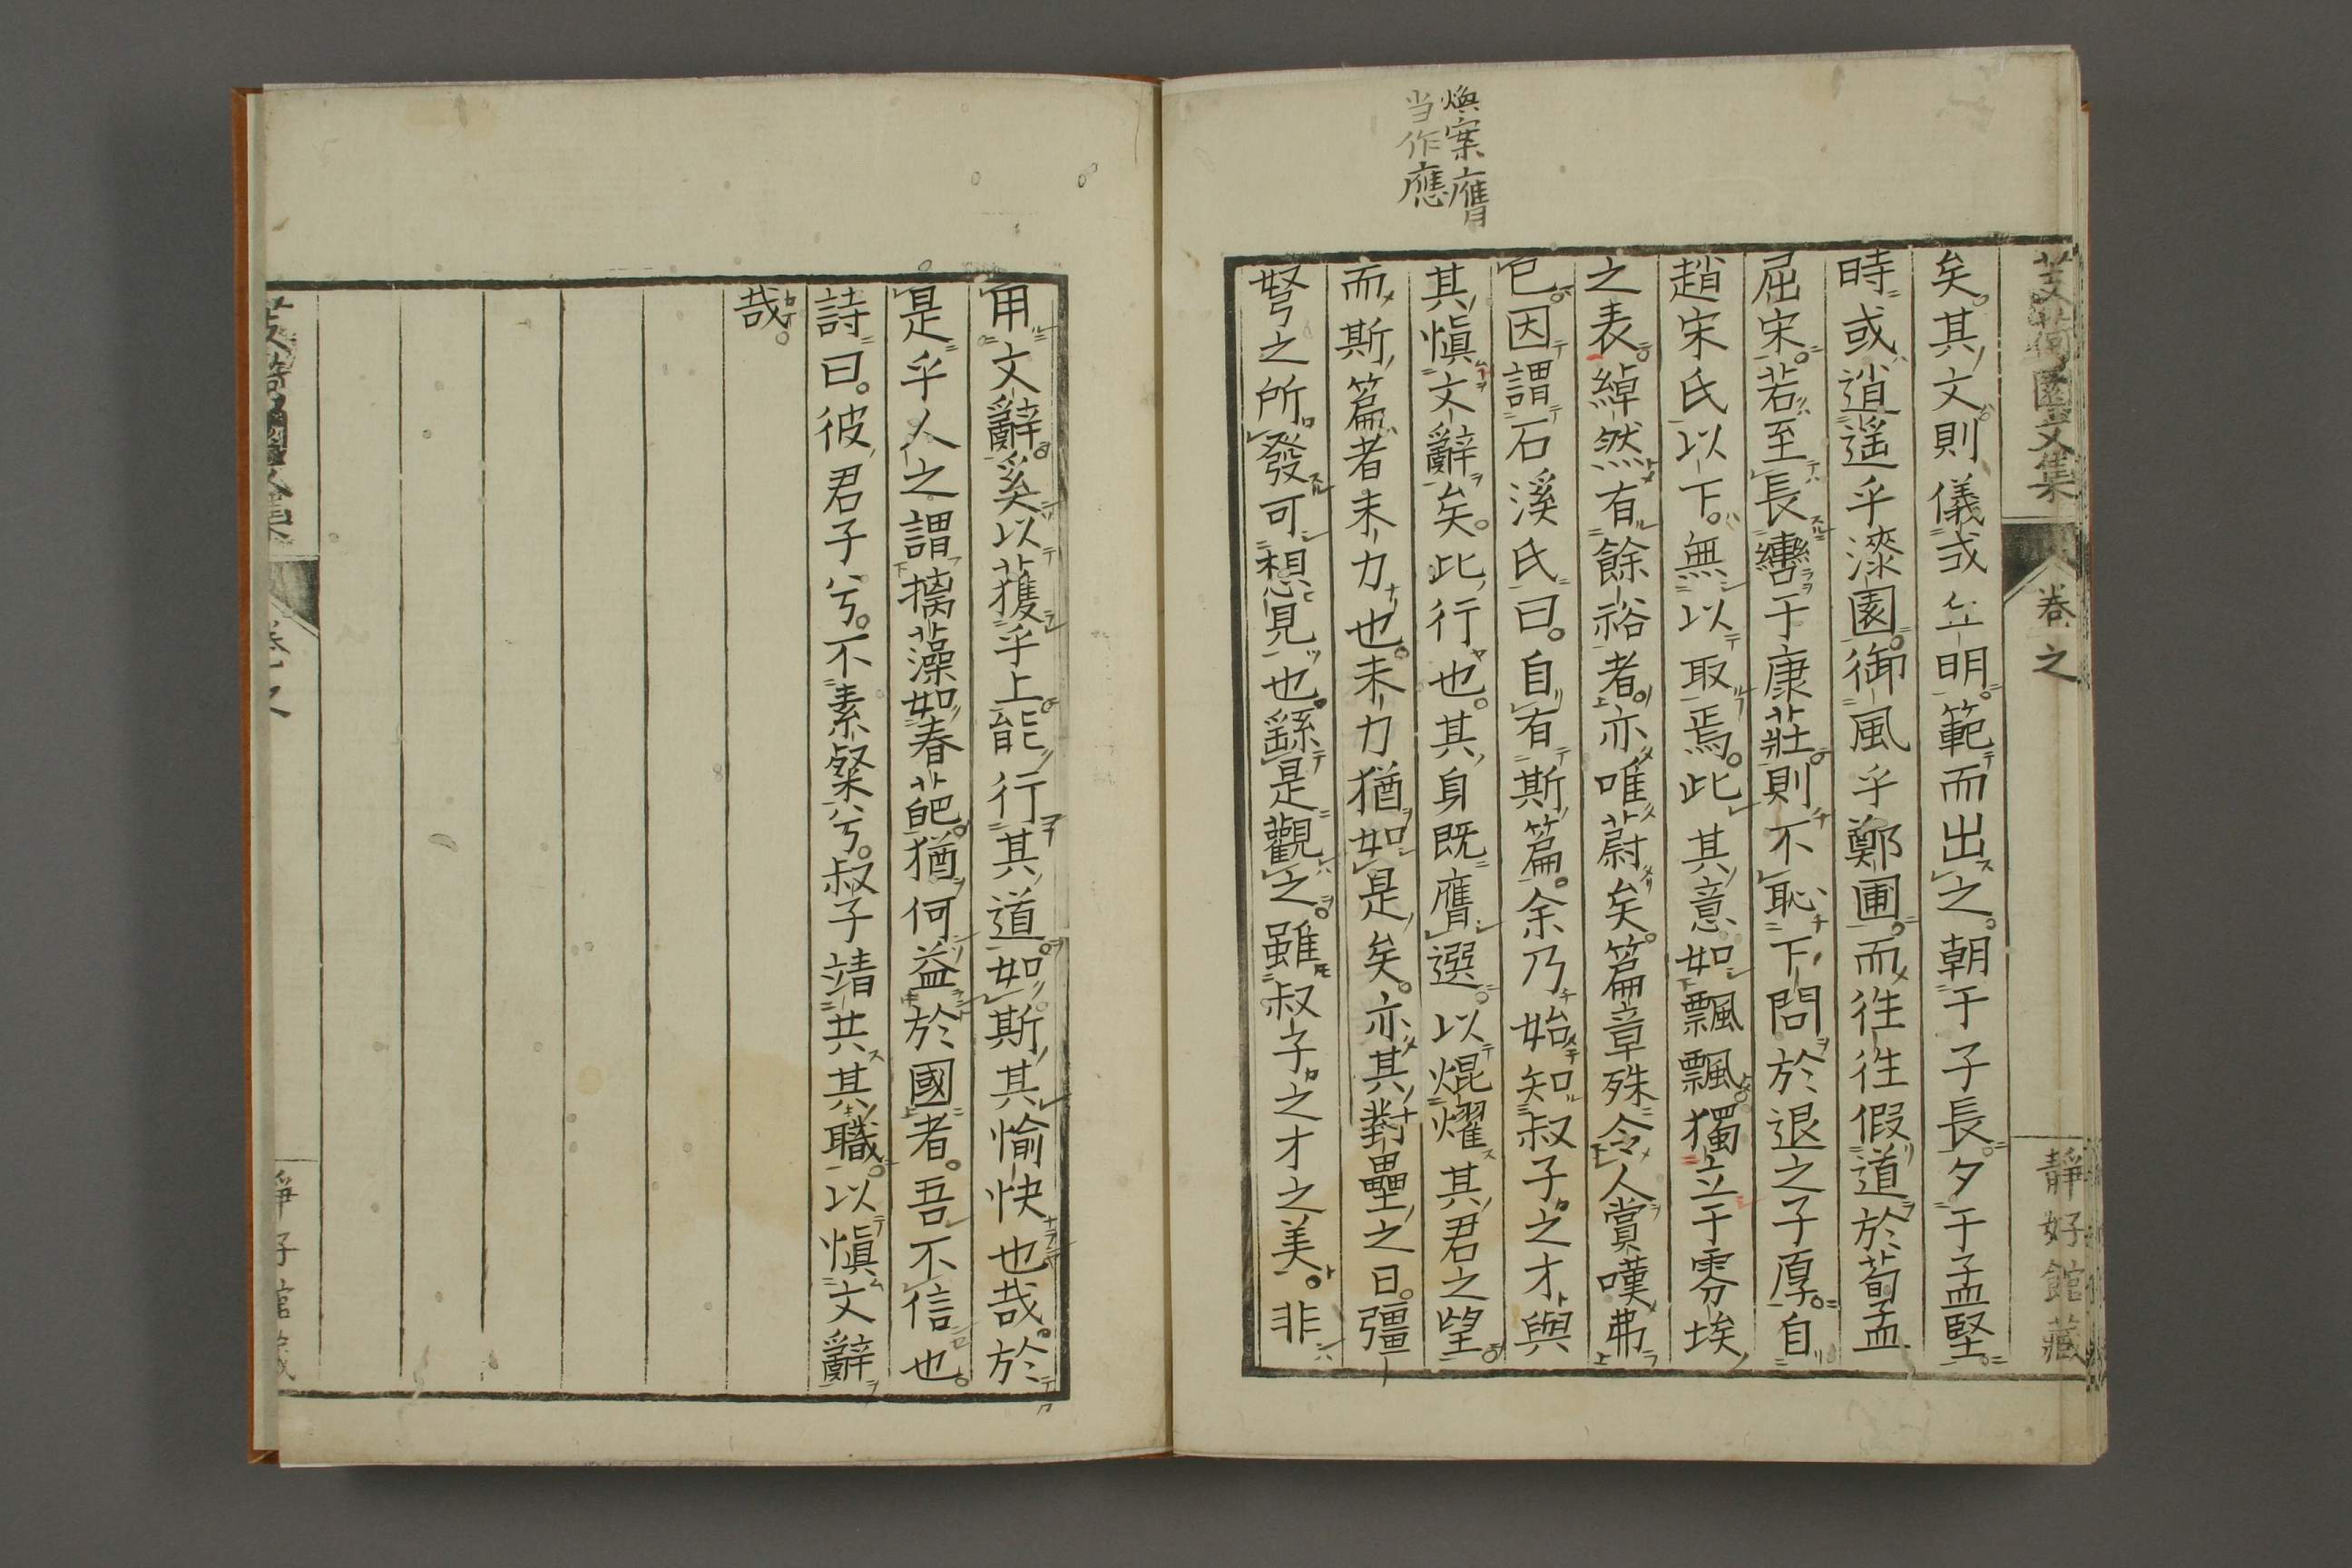 芰荷園文集
卷之
靜好館藏
煥案膺
当作應
矣其文則儀或丘明範而出之朝于子長夕于孟堅
時或逍遥乎漆園御風乎鄭圃而往往假道於荀孟
屈宋若至長轡于康莊則不恥下問於退之子厚自
趙宋氏以下無以取焉此其意如飄飄獨立于雰埃
之表綽然有餘裕者亦唯蔚矣篇章殊令人賞嘆弗
已因謂石溪氏曰自有斯篇余乃始知叔子之才與
其愼文辭矣此行也其身既膺選以焜燿其君之望
而斯篇者未力也未力猶如是矣亦其對壘之日彊
弩之所發可想見也繇是觀之雖叔子之才之美非
用文辭奚以獲乎上能行其道如斯其愉快也哉於
是乎人之謂摛藻如春葩猶何益於國者吾不信也
詩曰彼君子兮不素粲兮叔子靖共其職以愼文辭
哉